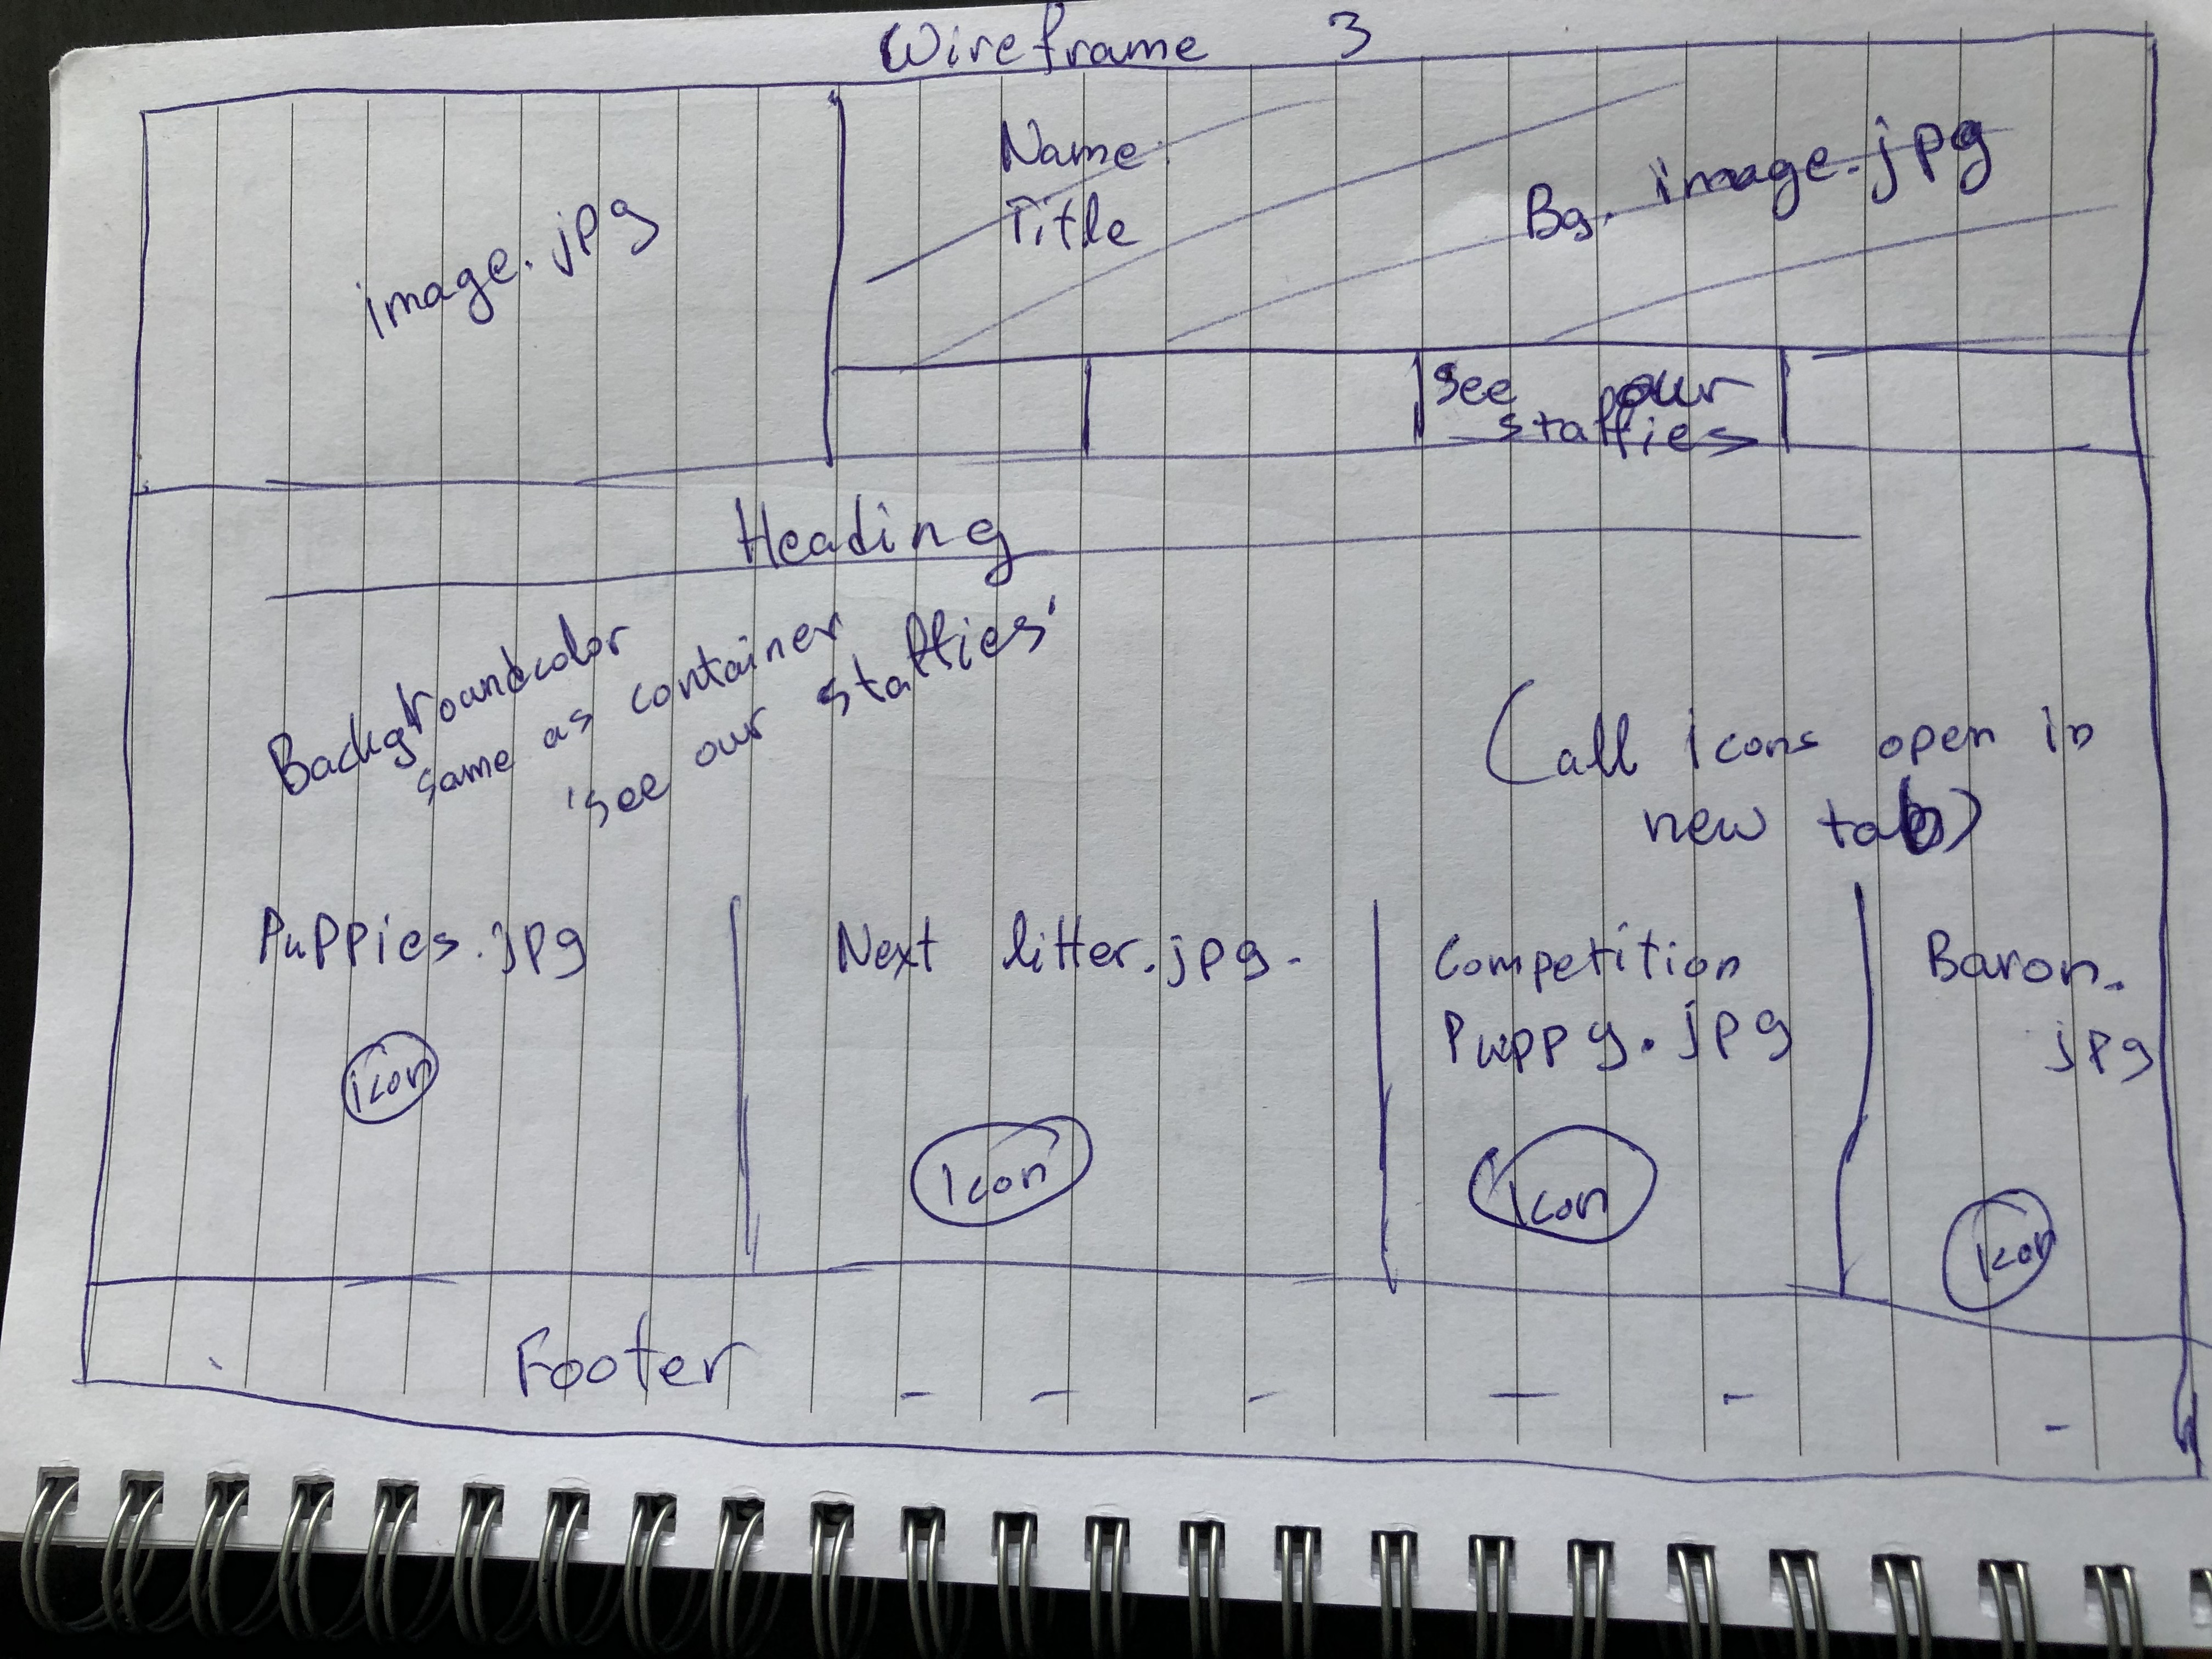 Wireframe 3
image.jpg
Name
Title
Bg. image.jpg
See our
staffies
Heading
Backgroundcolor
same as container
'see our staffies'
(all icons open in
new tab)
Puppies.jpg
icon
Next litter.jpg.
icon
Competition
Puppy.jpg
icon
Baron.
jpg
icon
Footer